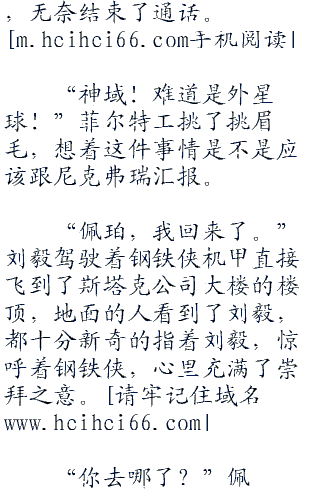 ，无奈结束了通话。
[m.hcihci66.com手机阅读|
“神域！难道是外星
球！”菲尔特工挑了挑眉
毛，想着这件事情是不是应
该跟尼克弗瑞汇报。
“佩珀，我回来了。”
刘毅驾驶着钢铁侠机甲直接
飞到了斯塔克公司大楼的楼
顶，地面的人看到了刘毅，
都十分新奇的指着刘毅，惊
呼着钢铁侠，心里充满了崇
拜之意。[请牢记住域名
www.hcihci66.com|
“你去哪了？”佩